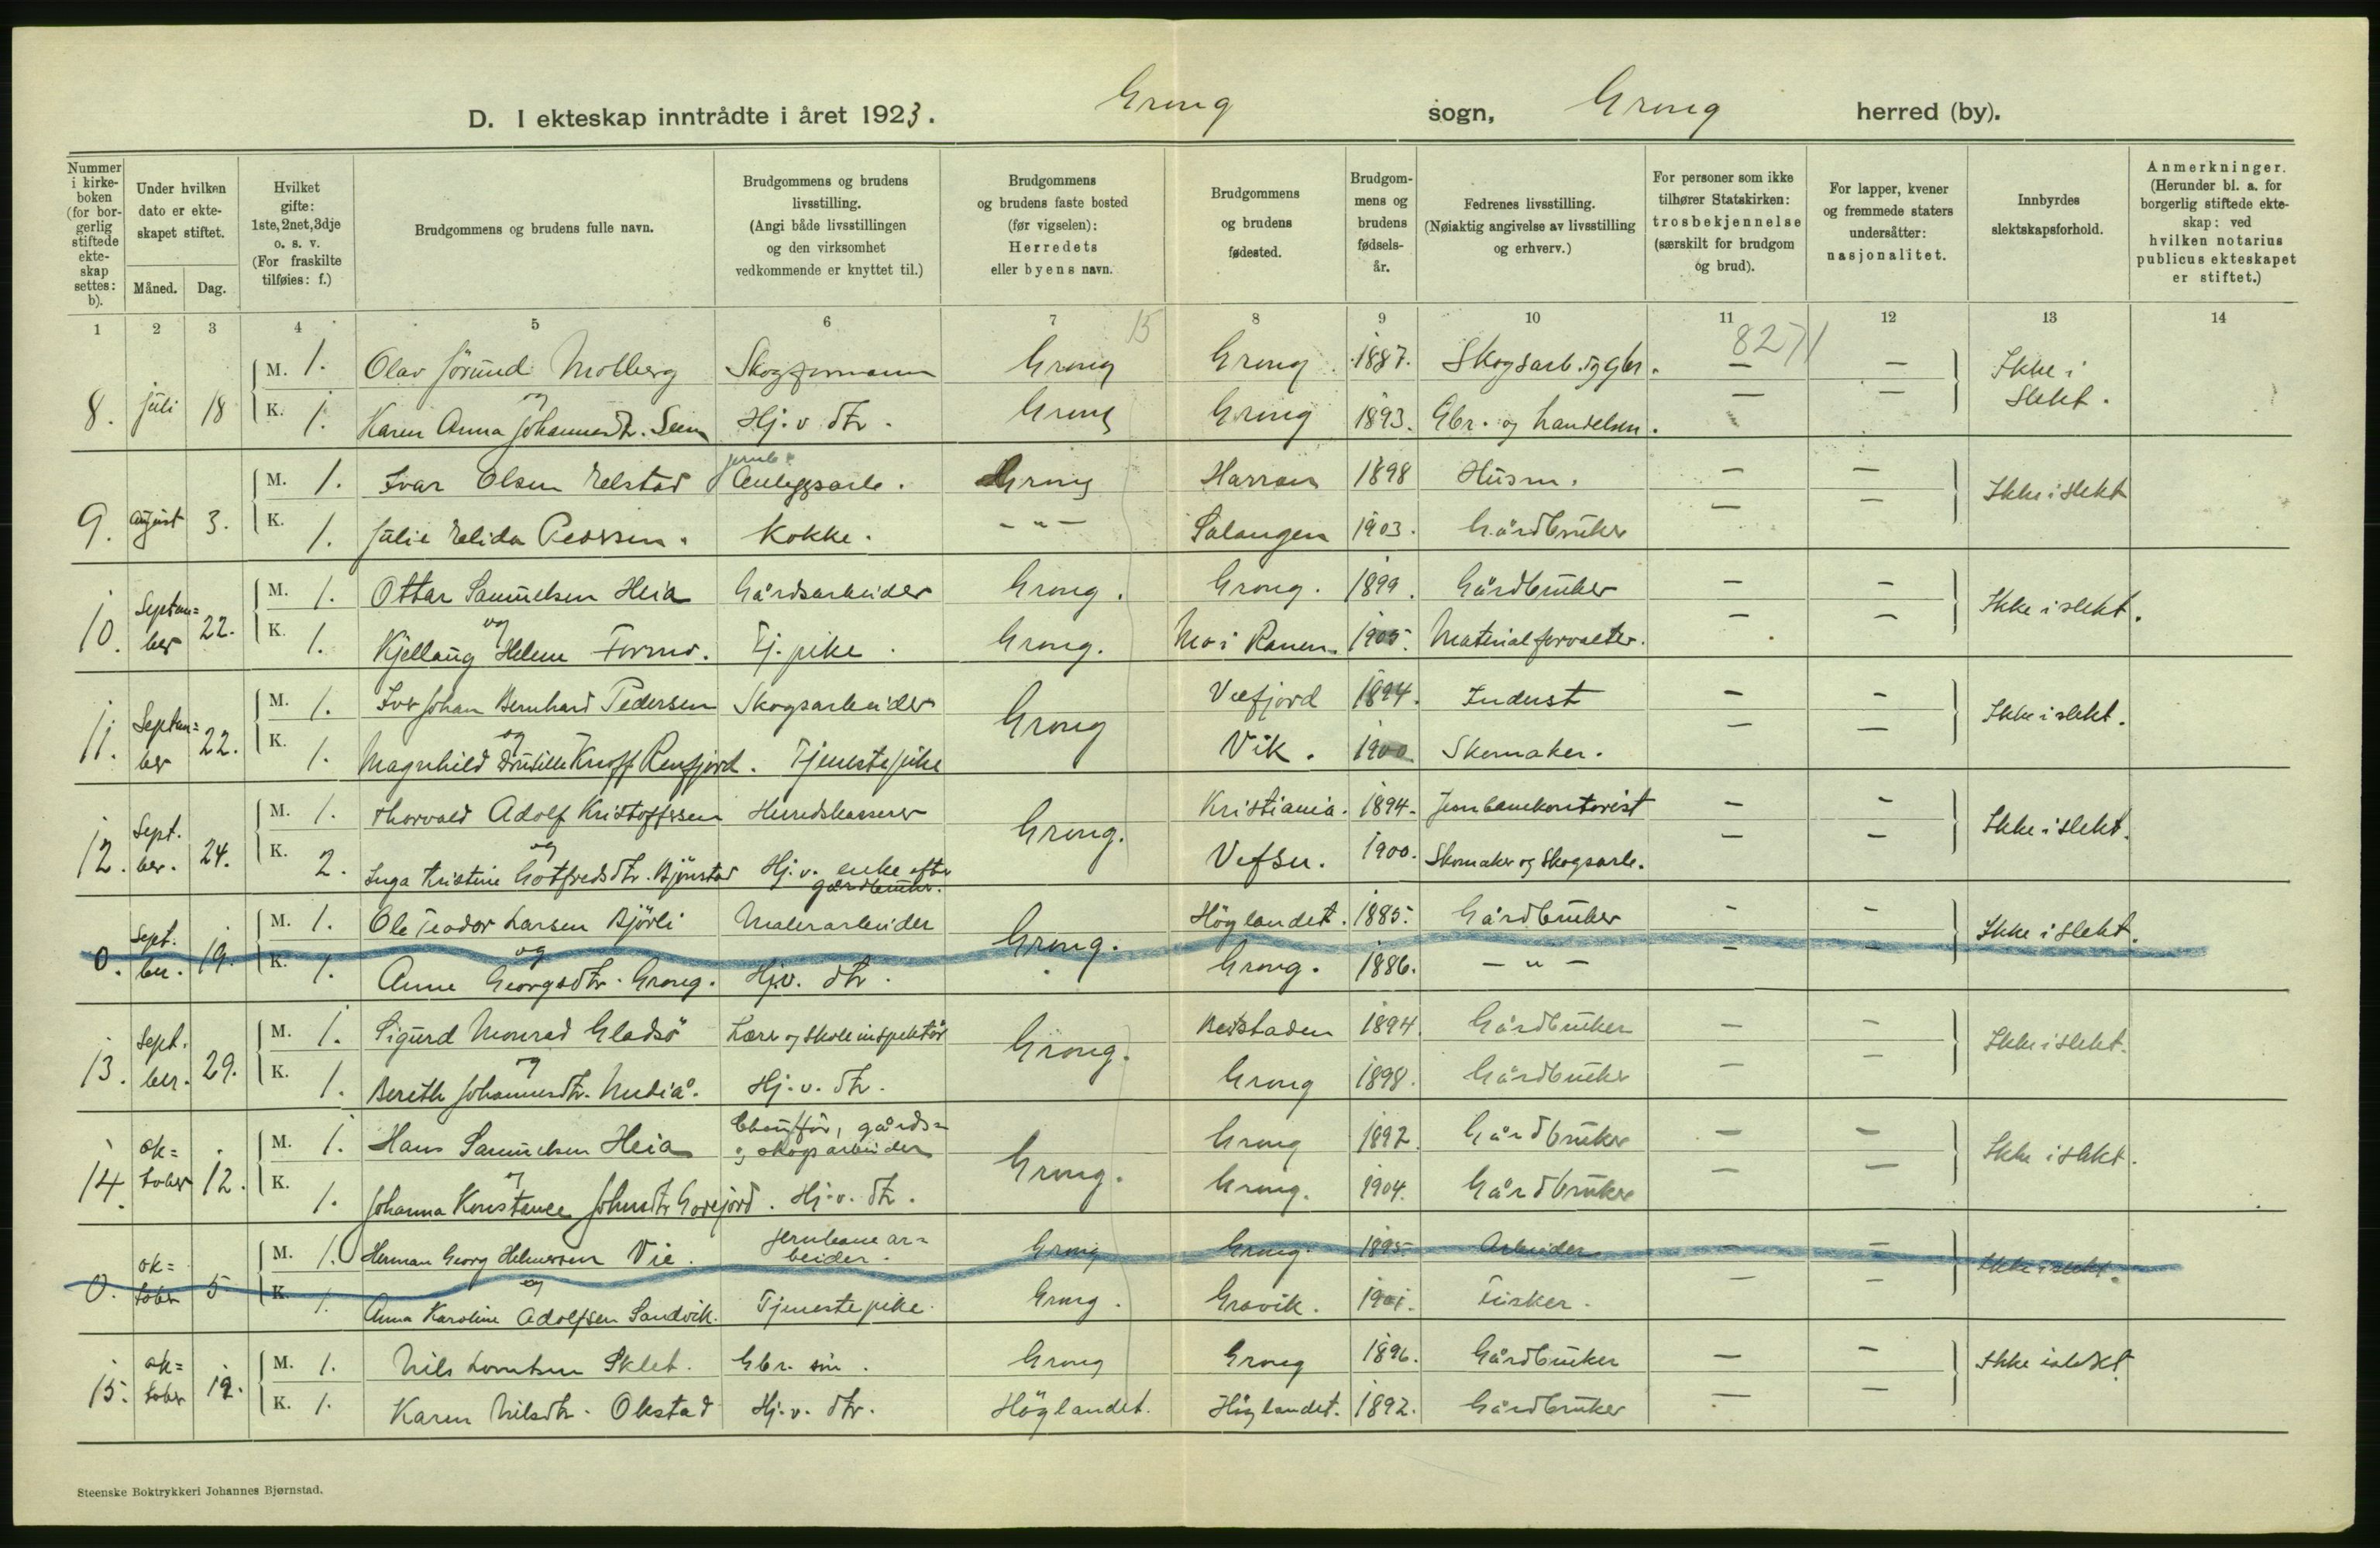 D. I ekteskap inntrådte i året 1923. Grong sogn, Grong herred (by).
Nummer i kirke-boken (for bor-gerlig stiftede ekte-skap settes: b).
Under hvilken dato er ekte-skapet stiftet.
Måned. Dag.
Hvilket gifte: 1ste, 2net, 3dje o. s. v. (For fraskilte tilføies: f.)
Brudgommens og brudens fulle navn.
Brudgommens og brudens livsstilling. (Angi både livsstillingen og den virksomhet vedkommende er knyttet til.)
Brudgommens og brudens faste bosted (før vigselen): Herredets eller byens navn.
Brudgommens og brudens fødested.
Brudgom-mens og brudens fødsels-år.
Fedrenes livsstilling. (Nøiaktig angivelse av livsstilling og erhverv.)
For personer som ikke tilhører Statskirken: trosbekjennelse (særskilt for brudgom og brud).
For lapper, kvener og fremmede staters undersåtter: nasjonalitet.
Innbyrdes slektskapsforhold.
Anmerkninger. (Herunder bl. a. for borgerlig stiftede ekte-skap: ved hvilken notarius publicus ekteskapet er stiftet.)
1 2 3 4 5 6 7 8 9 10 11 12 13 14
15 8271
M. 1. Olav Jörund Molberg Skogformann Grong Grong 1887. Skogsarb. og gbr. — — Ikke i
8. juli 18 K. 1. og Karen Anna Johannesdtr. Seem Hj. v. dtr. Grong Grong 1893. Gbr. og handelsm. — — slekt.
M. 1. Ivar Olsen Elstad jernb. Anleggsarb. Grong Harran 1898 Husm. — — Ikke i slekt
9. August 3. K. 1. Julie Elida Pedersen. Kokke. -"- Salangen 1903. Gårdbruker — —
M. 1. Ottar Samuelsen Heia Gårdsarbeider Grong. Grong. 1899. Gårdbruker — — Ikke i slekt.
10. Septem=ber 22. K. 1. og Kjellaug Helene Formo. Tj. pike Grong. Mo i Ranen. 1905. Materialforvalter. — —
M. 1. Iver Johan Bernhard Pedersen Skogsarbeider Grong Velfjord 1894. Inderst — — Ikke i slekt.
11. Septem=ber 22. K. 1. og Magnhild Drusille Knoff Renfjord. Tjenestepike Vik. 1900 Skomaker. — —
M. 1. Thorvald Adolf Kristoffersen Herredskasserer Grong. Kristiania. 1894. Jernbanekontorist — — Ikke i slekt.
12. Sept.ber. 24. K. 2. og Inga Kristine Gotfredsdtr. Bjönstad Hj. v. enke efter gårdbruker. Vefsn. 1900. Skomaker og skogsarb. — —
M. 1. Ole Teodor Larsen Björli Malerarbeider Grong. Höglandet. 1885. Gårdbruker - - Ikke i slekt.
0. Sept.ber. 19. K. 1. og Anne Georgsdtr. Grong. Hj.v. dtr. Grong. 1886. -"- - -
M. 1. Sigurd Monrad Gladsö Lærer og skoleinspektör Grong. Beitstaden 1894. Gårdbruker — — Ikke i slekt.
13. Sept.ber. 29. K. 1. og Bereth Johannesdtr. Mediå. Hj. v. dtr. Grong 1898. Gårdbruker — —
M. 1. Hans Samuelsen Heia Chaufför, gårds= og skogsarbeider Grong. Grong 1892. Gårdbruker — — Ikke i slekt.
14. ok=tober 12. K. 1. og Johanna Konstance Johnsdtr Gorejord. Hj. v. dtr. Grong. 1904. Gårdbruker — —
M. 1. Herman Georg Helmersen Vie. Jernbanear=beider. Grong Grong. 1895. Arbeider — — Ikke i slekt.
0. ok=tober 5 K. 1. og Anna Karoline Adolfsen Sandvik. Tjenestepike. Grong. Gravik. 1901. Fisker. — —
M. 1. Nils Lorntsen Sklet. Gbr. sön. Grong Grong 1896. Gårdbruker — — Ikke i slekt.
15. ok=tober 19. K. 1. Karen Nilsdtr. Olestad Hj. v. dtr. Höglandet. Höglandet. 1892. Gårdbruker — —
Steenske Boktrykkeri Johannes Bjørnstad.